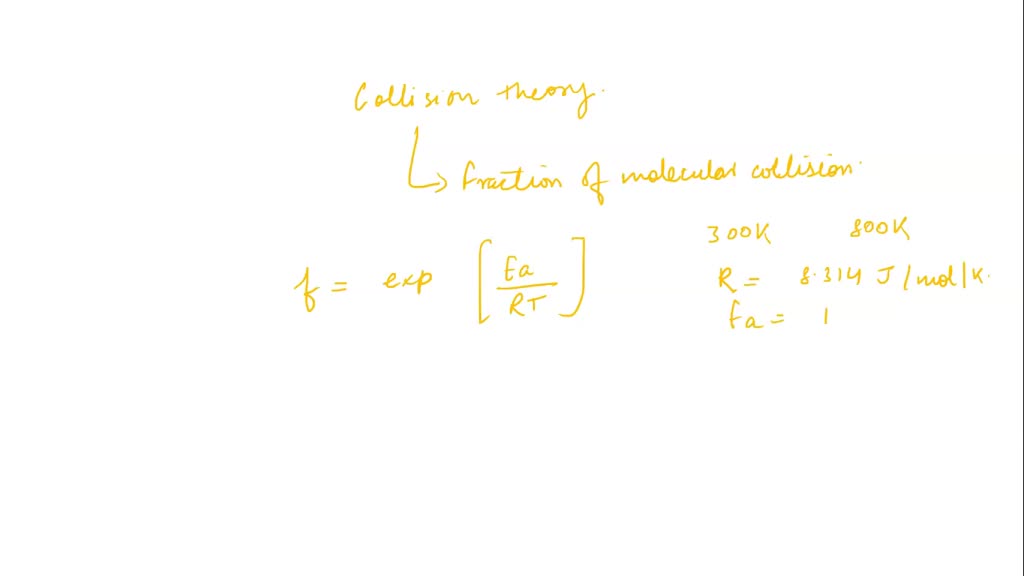 Collision theory.
fraction of molecular collision.
300K 800K
f = exp [Ea/RT]
R = 8.314 J/mol/K.
Ea = 1